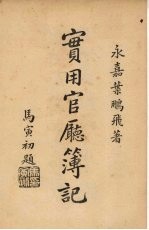 永嘉葉鵬飛著
實用官廳簿記
馬寅初題